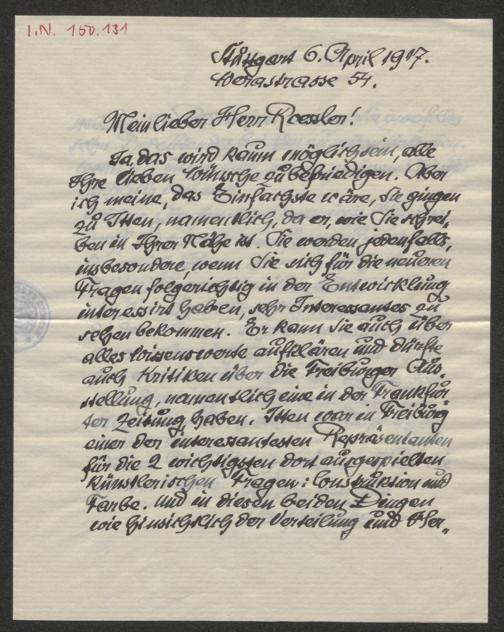 I.N. 150.131
Stuttgart 6. April 1917.
Werastrasse 54.
Mein lieber Herr Roessler!
Ja das wird kaum möglich sein, alle
Ihre lieben Wünsche zu befriedigen. Aber
ich meine, das Einfachste wäre, Sie gingen
zu Itten, namentlich, da er, wie Sie schrei,
ben in Ihrer Nähe ist. Sie werden jedenfalls,
insbesondere, wenn Sie sich für die neueren
Fragen folgerichtig in der Entwicklung
interessirt haben, sehr Interessantes zu
sehen bekommen. Er kann Sie auch über
alles Wissenswerte aufklären und dürfte
auch Kritiken über die Freiburger Aus,
stellung, namentlich eine in der Frankfur
ter Zeitung, haben. Itten war in Freiburg
einer der interessantesten Repräsentanten
für die 2 wichtigsten dort ausgespielten
Künstlerischen Fragen: Construktion und
Farbe. Und in diesen beiden Dingen
wie hinsichtlich der Verteilung und Her,,